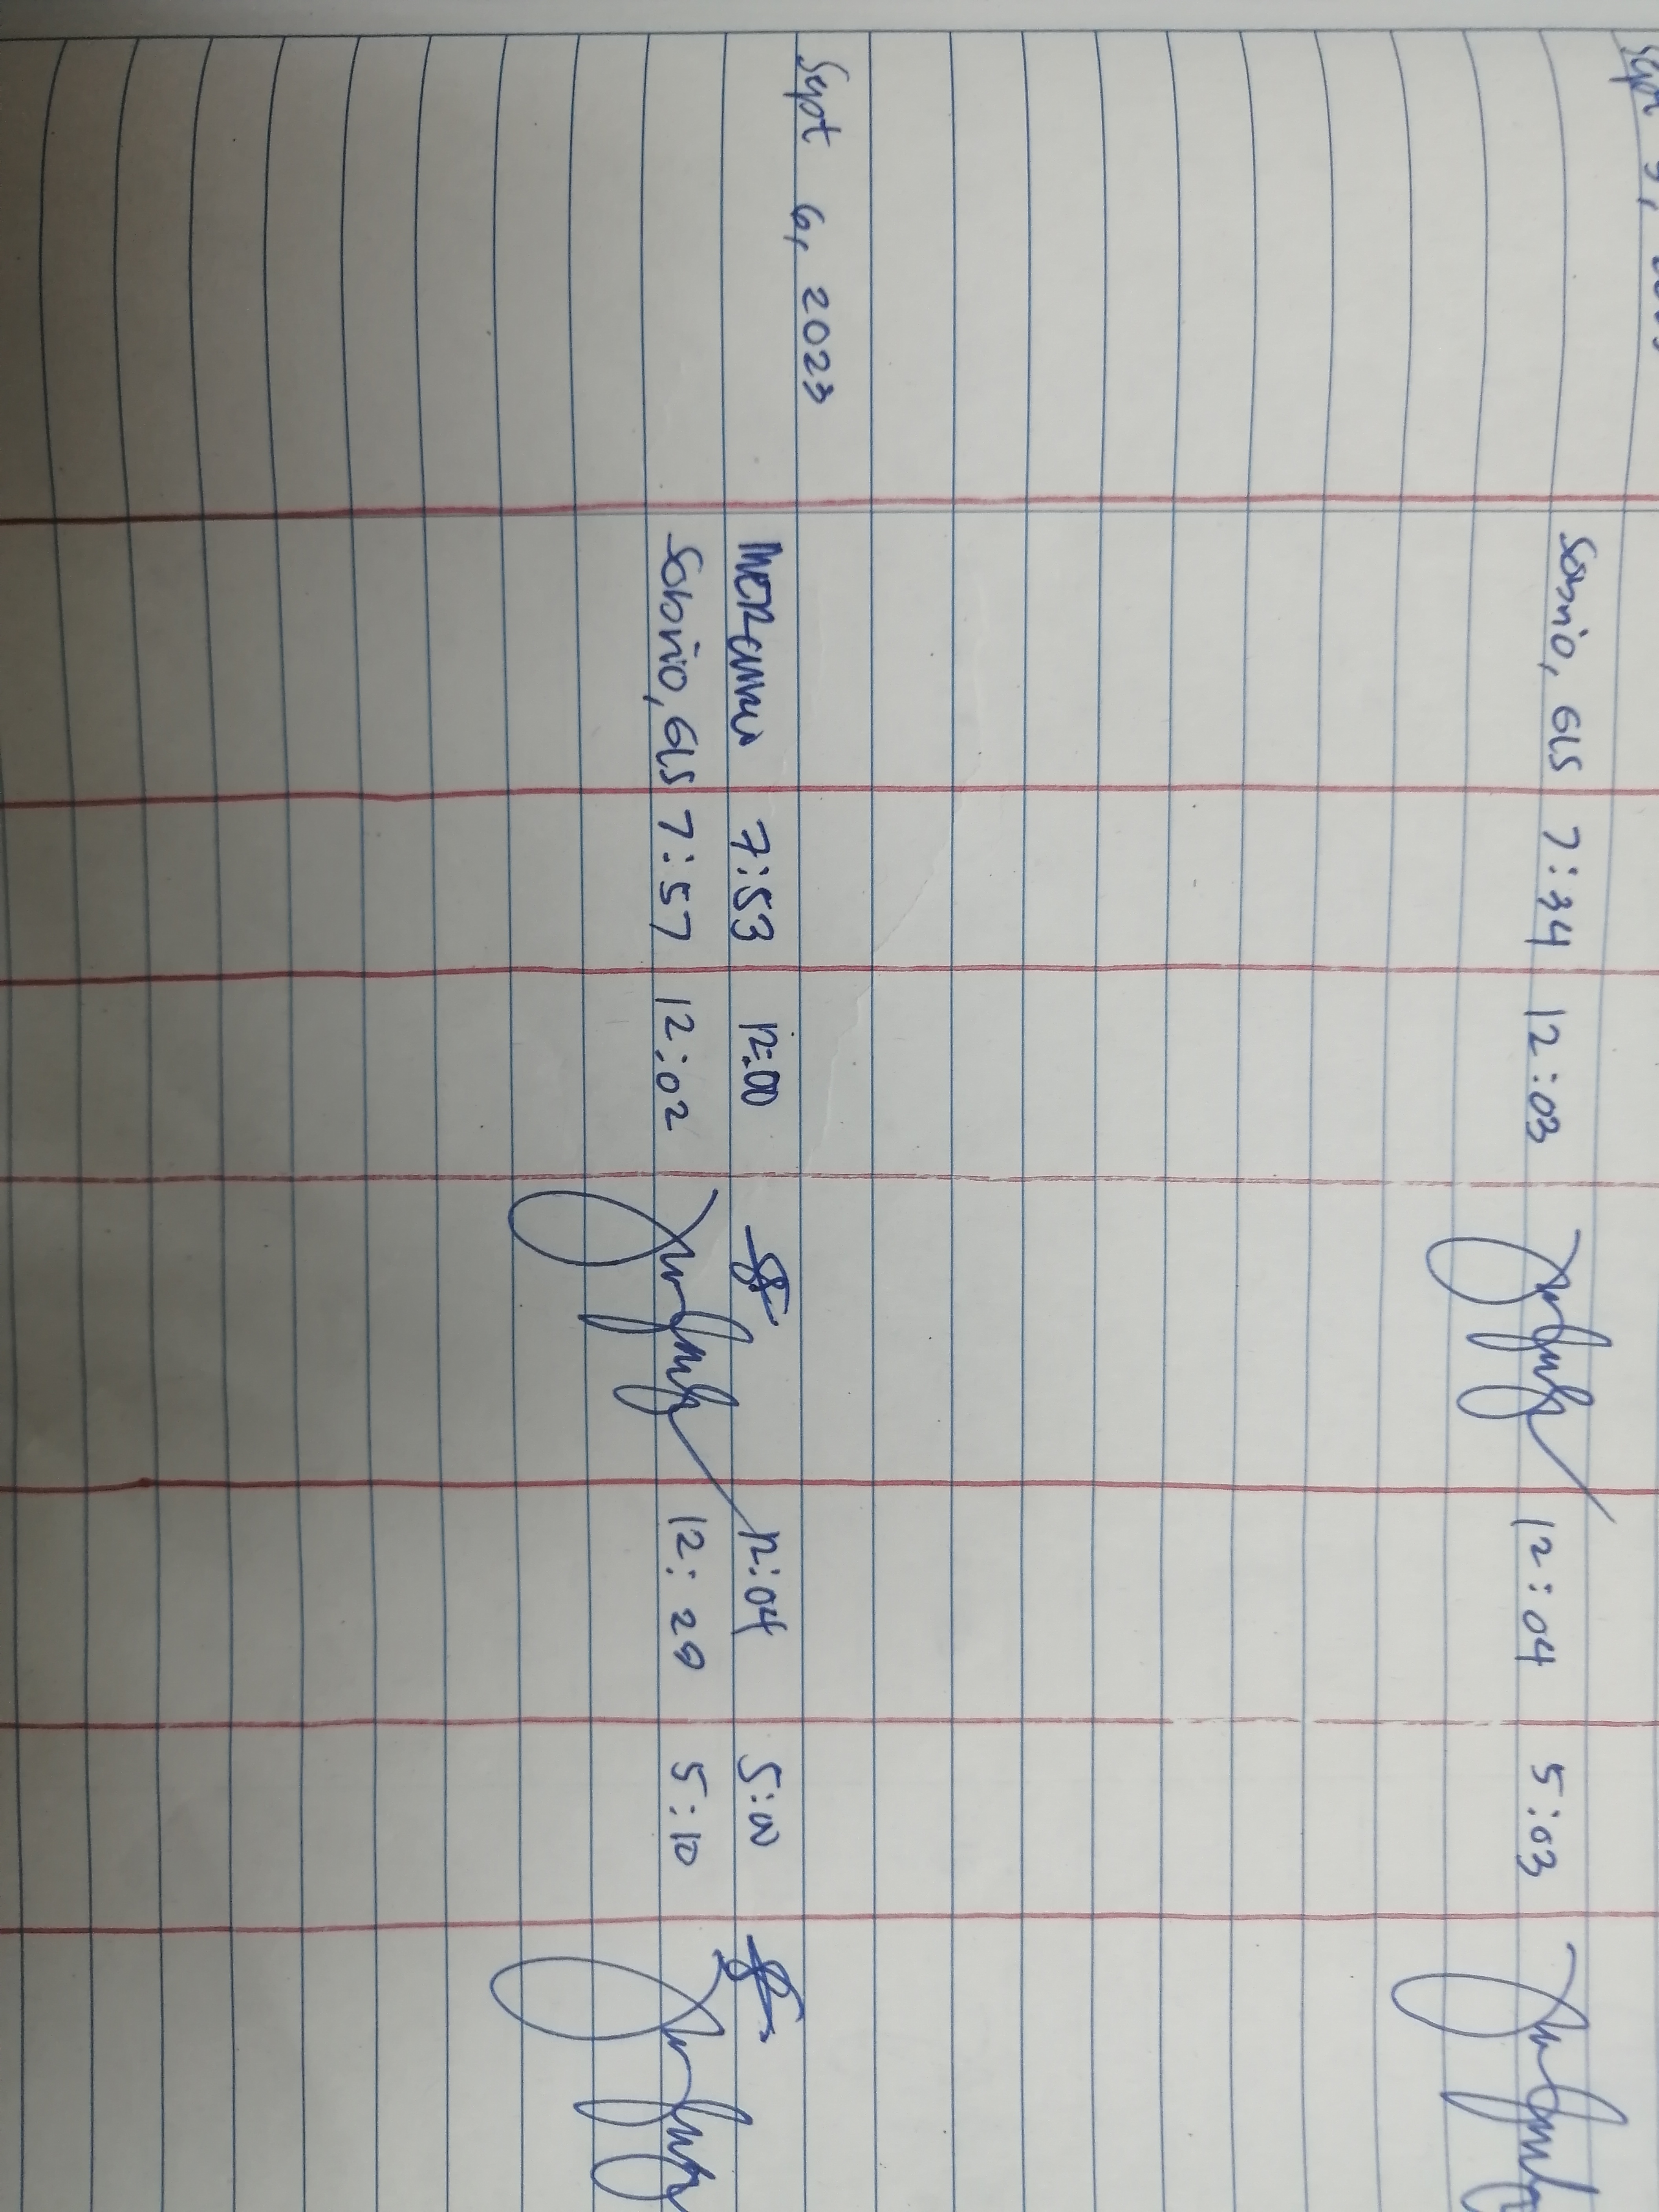 Sept 5,
Sabrio, GLS 7:34 12:03 12:04 5:03
Sept 6, 2023
7:53 12:00 12:04 5:00
Sabrio, GLS 7:57 12:02 12:29 5:10